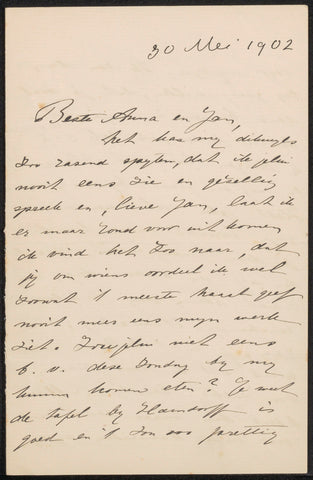 30 Mei 1902
Beste Anna en Jan,
Het kan my dikwyls
zoo razend spyten, dat ik jelui
nooit eens zie en gezellig
spreek en, lieve Jan, laat ik
er maar rond voor uit komen
ik vind het zoo naar, dat
jij om wiens oordeel ik wel
zoowat 't meeste haast geef
nooit meer eens myn werk
ziet. Zou jelui niet eens
b.v. deze Zondag by my
kunnen komen eten? Je weet
de tafel by Hamdorff is
goed en 't zou zoo prettig